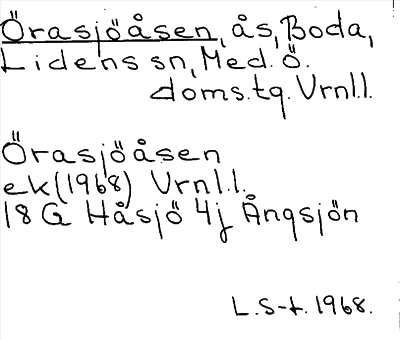 Örasjöåsen, ås, Boda,
Lidens sn, Med. Ö.
doms.tg. Vrnl.l.
Örasjöåsen
ek (1968) Vrnl.l.
18 G Håsjö 4j Ångsjön
L.S-t. 1968.